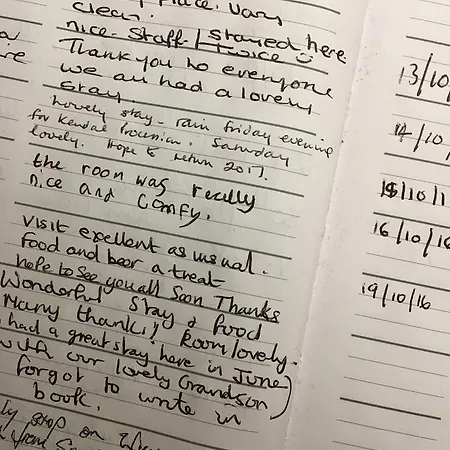 place. Vary
clean.
nice. Staff / stayed here
twice
Thank you to everyone
we all had a lovely
stay
Lovely stay - rain friday evening
for Kendal Procession. Saturday
lovely. Hope to return 2017.
the room was really
nice and comfy.
Visit excellent as usual.
food and beer a treat
hope to see you all soon Thanks
Wonderful stay & food
Many thanks! Room lovely.
had a great stay here in June
with our lovely Grandson)
forgot to write in
book.
stop on
13/10
14/10
15/10/1
16/10/16
19/10/16